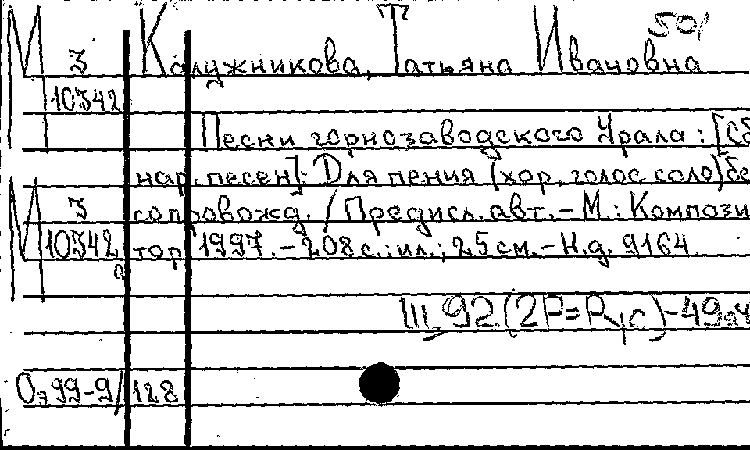 501
М З Калужникова, Татьяна Ивановна
10342
Песни горнозаводского Урала: [Сб
нар. песен]: Для пения (хор, голос соло) бе
М З сопровожд. / Предисл. авт. - М.: Компози
10342 тор 1997. - 208 с.: ил.; 25 см. - Н.д. 9164
а
Щ 92(2Р=Р)
Оэ 99-9/128